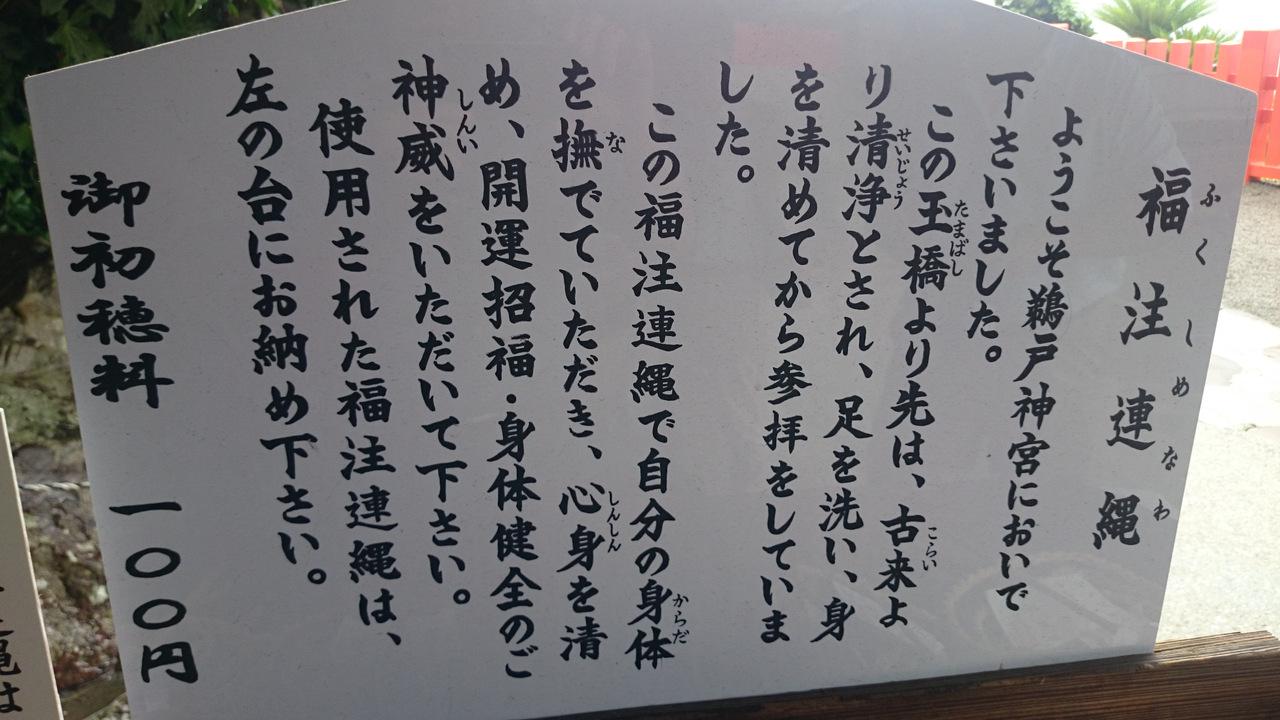 福注連縄
ふくしめなわ
ようこそ鵜戸神宮においで
下さいました。
この玉橋より先は、古来よ
たまばし
こらい
り清浄とされ、足を洗い、身
せいじょう
を清めてから参拝をしていま
した。
この福注連縄で自分の身体
からだ
を撫でていただき、心身を清
な
しんしん
め、開運招福・身体健全のご
神威をいただいて下さい。
しんい
使用された福注連縄は、
左の台にお納め下さい。
御初穂料 一〇〇円